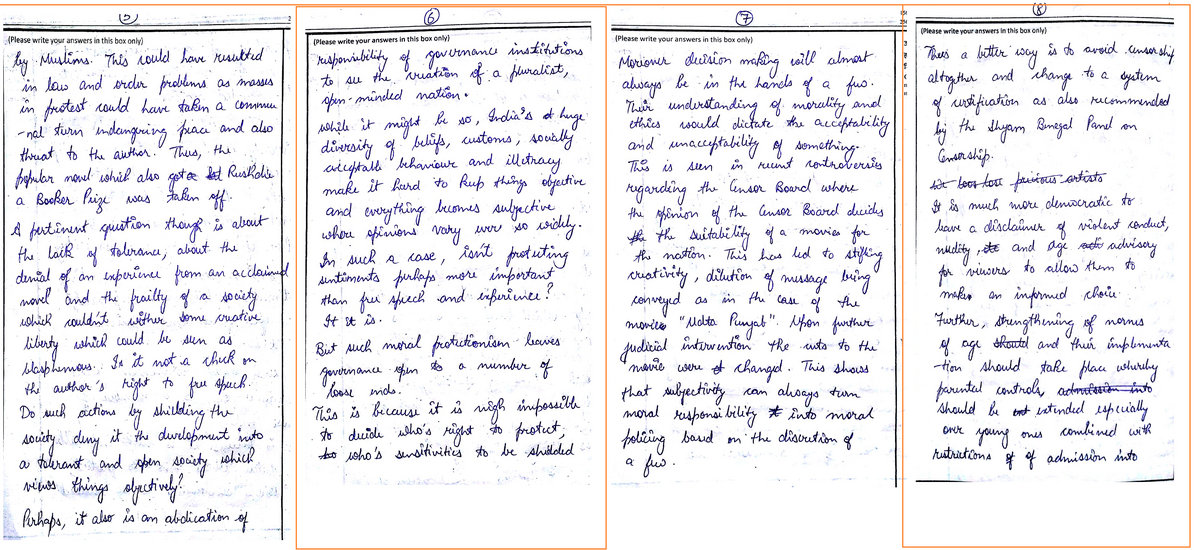 5
(Please write your answers in this box only)
by Muslims. This could have resulted
in law and order problems as masses
in protest could have taken a commu
-nal turn endangering peace and also
threat to the author. Thus, the
popular novel which also got Rushdie
a Booker Prize was taken off.
A pertinent question though is about
the lack of tolerance, about the
denial of an experience from an acclaimed
novel and the frailty of a society
which couldn't wither some creative
liberty which could be seen as
blasphemous. Is it not a check on
the author's right to free speech.
Do such actions by shielding the
society deny it the development into
a tolerant and open society which
views things objectively?
Perhaps, it also is an abdication of
6
(Please write your answers in this box only)
responsibility of governance institutions
to see the creation of a pluralist,
open-minded nation.
While it might be so, India's huge
diversity of beliefs, customs, socially
acceptable behaviour and illetracy
make it hard to keep things objective
and everything becomes subjective
where opinions vary ever so widely.
In such a case, isn't protecting
sentiments perhaps more important
than free speech and experience?
It is.
But such moral protectionism leaves
governance open to a number of
loose ends.
This is because it is nigh impossible
to decide who's right to protect,
who's sensitivities to be shielded
7
(Please write your answers in this box only)
Moreover decision making will almost
always be in the hands of a few.
Their understanding of morality and
ethics would dictate the acceptability
and unacceptability of something.
This is seen in recent controversies
regarding the Censor Board where
the opinion of the Censor Board decides
the suitability of a movies for
the nation. This has led to stifling
creativity, dilution of message being
conveyed as in the case of the
movie "Udta Punjab". Upon further
judicial intervention the cuts to the
movie were changed. This shows
that subjectivity can always turn
moral responsibility into moral
policing based on the discretion of
a few.
8
(Please write your answers in this box only)
Thus a better way is to avoid censorship
altogether and change to a system
of certification as also recommended
by the Shyam Benegal Panel on
Censorship.
precious artists
It is much more democratic to
have a disclaimer of violent conduct,
nudity, and age advisory
for viewers to allow them to
make an informed choice.
Further, strengthening of norms
of age should and their implementa
-tion should take place whereby
parental controls, admission into
should be extended especially
over young ones combined with
restrictions of admission into